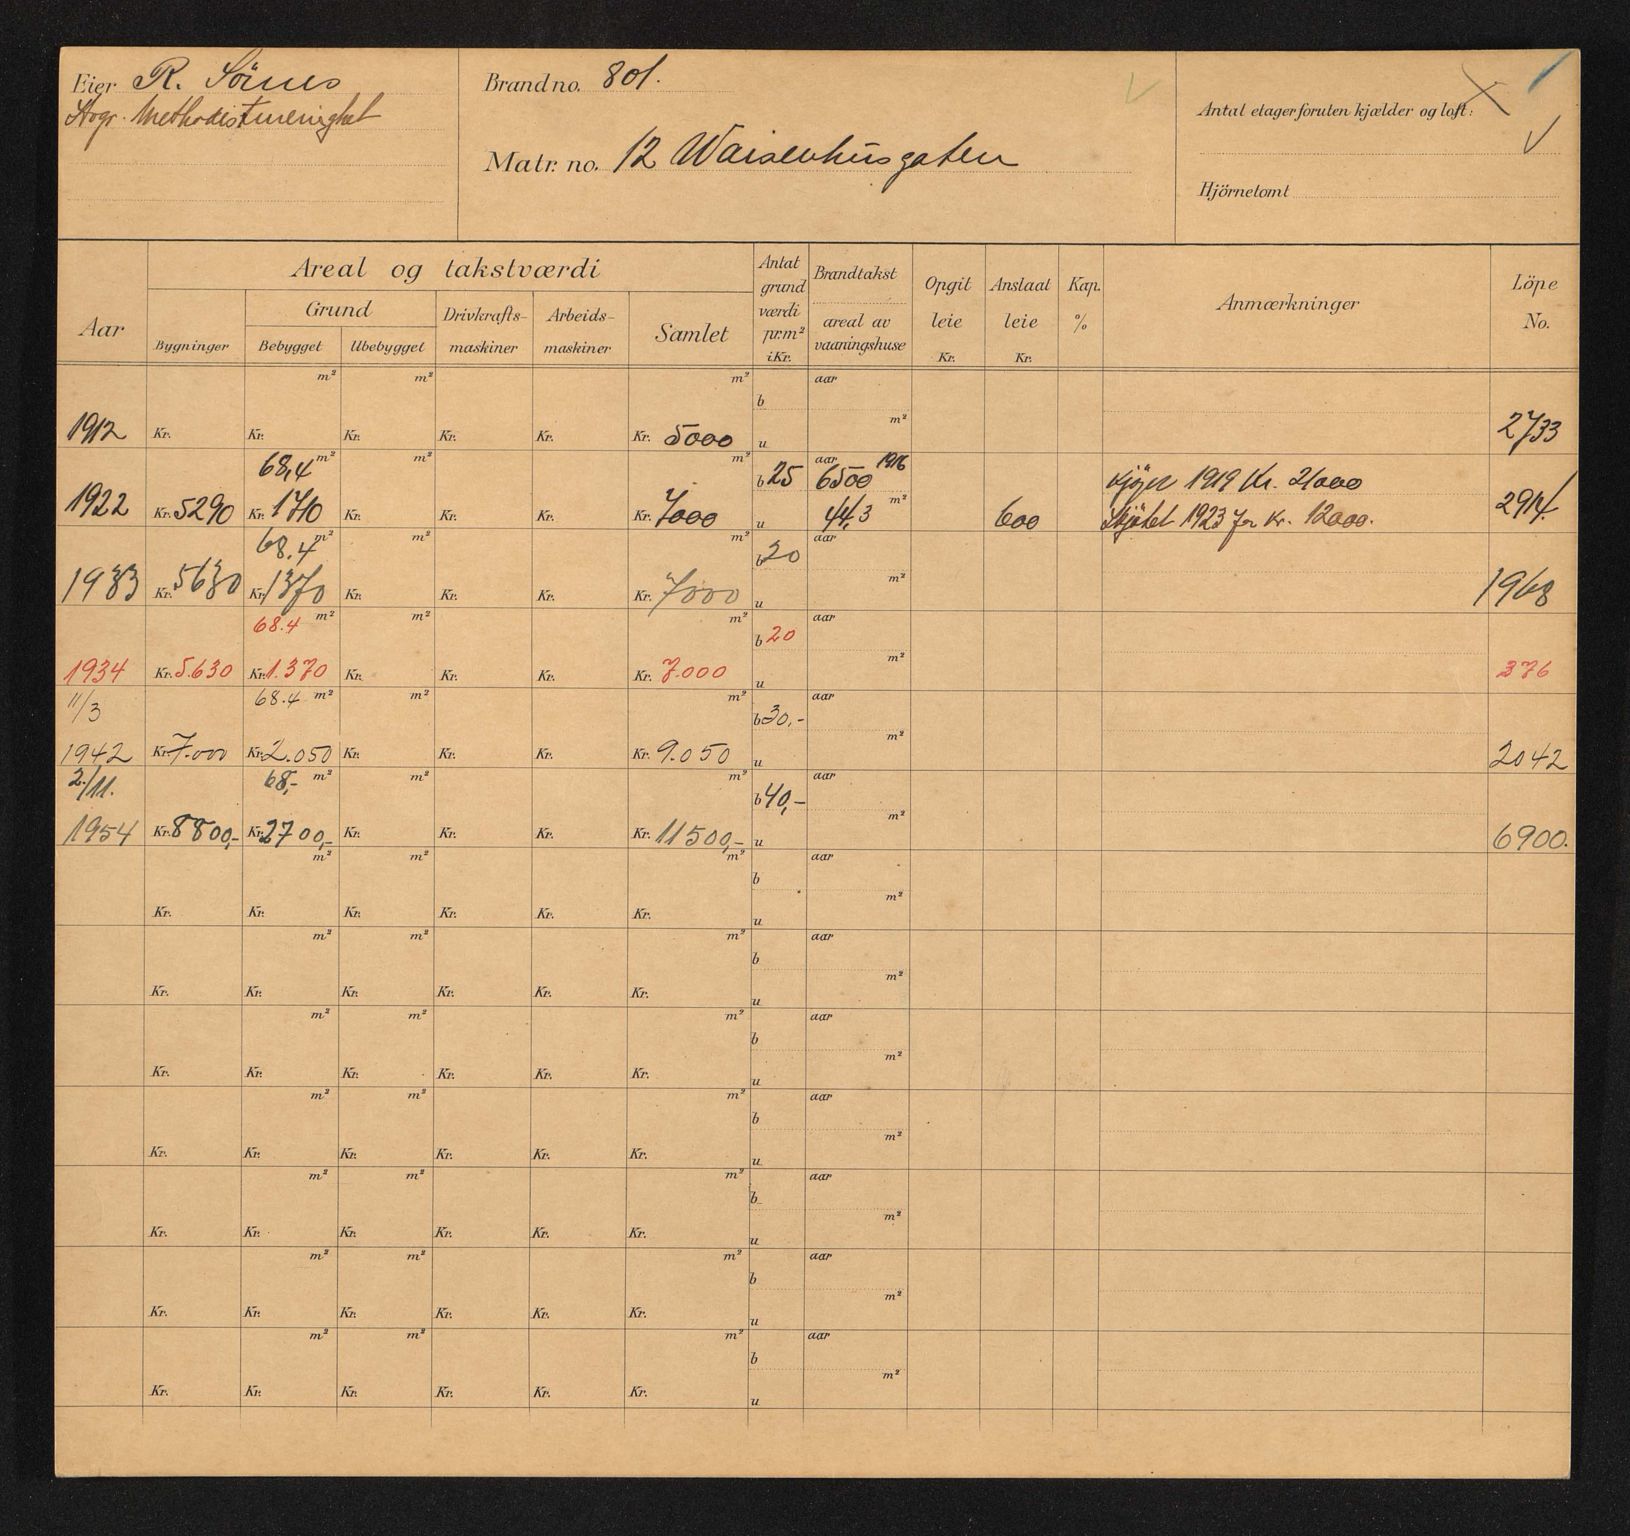 Eier R. Sörnes
Methodistmenighet
Brandno. 801.
Matr. no. 12 Waisenhusgaten
Antal etager foruten kjælder og loft:
Hjörnetomt
Aar
Areal og takstværdi
Bygninger
Grund
Bebygget
Ubebygget
Drivkrafts-
maskiner
Arbeids-
maskiner
Samlet
Antal
grund
værdi
pr.m²
i Kr.
Brandtakst
areal av
vaaningshuse
Opgit
leie
Kr.
Anslaat
leie
Kr.
Kap.
%
Anmærkninger
Löpe
No.
m² m² m² b aar
1912 Kr. Kr. Kr. Kr. Kr. Kr. 5000 u m² 2733
68,4 m² m² m² b 25 aar 1916 6500 Kjøper 1919 Kr. 21000
1922 Kr. 5290 Kr. 1710 Kr. Kr. Kr. Kr. 7000 u 44,3 m² 600 Skjötet 1923 for Kr. 12000. 2914.
68.4 m² m² m² b 20 aar
1933 Kr. 5630 Kr. 1370 Kr. Kr. Kr. Kr. 7000 u m² 1968
68.4 m² m² m² b 20 aar
1934 Kr. 5.630 Kr. 1.370 Kr. Kr. Kr. Kr. 7.000 u m² 376
11/3 68.4 m² m² m² b 30,- aar
1942 Kr. 7.000 Kr. 2.050 Kr. Kr. Kr. Kr. 9.050 u m² 2042
2./11. 68,- m² m² m² b 40,- aar
1954 Kr. 8800,- Kr. 2700,- Kr. Kr. Kr. Kr. 11500,- u m² 6900.
m² m² m² b aar
Kr. Kr. Kr. Kr. Kr. Kr. u m²
m² m² m² b aar
Kr. Kr. Kr. Kr. Kr. Kr. u m²
m² m² m² b aar
Kr. Kr. Kr. Kr. Kr. Kr. u m²
m² m² m² b aar
Kr. Kr. Kr. Kr. Kr. Kr. u m²
m² m² m² b aar
Kr. Kr. Kr. Kr. Kr. Kr. u m²
m² m² m² b aar
Kr. Kr. Kr. Kr. Kr. Kr. u m²
m² m² m² b aar
Kr. Kr. Kr. Kr. Kr. Kr. u m²